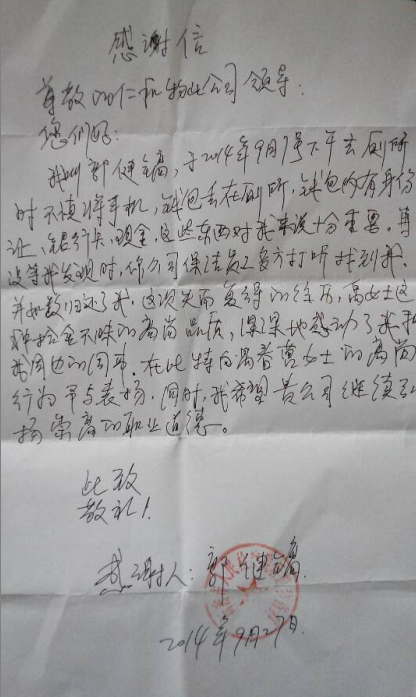 感谢信
尊敬的仁和物业公司领导：
您们好：
我叫郭健镝，于2014年9月7号下午去厕所
时不慎将手机，钱包丢在厕所，钱包内有身份
证、银行卡、现金，这些东西对我来说十分重要。再
没等我发现时，你公司保洁员工多方打听找到我，
并如数归还了我，这次失而复得的经历，高女士这
种拾金不昧的高尚品质，深深地感动了我和
我周边的同事。在此特向高春 女士的高尚
行为 予与表扬，同时，我希望贵公司继续弘
扬崇高的职业道德。
此致
敬礼！
感谢人：郭健镝
2014年9月27日